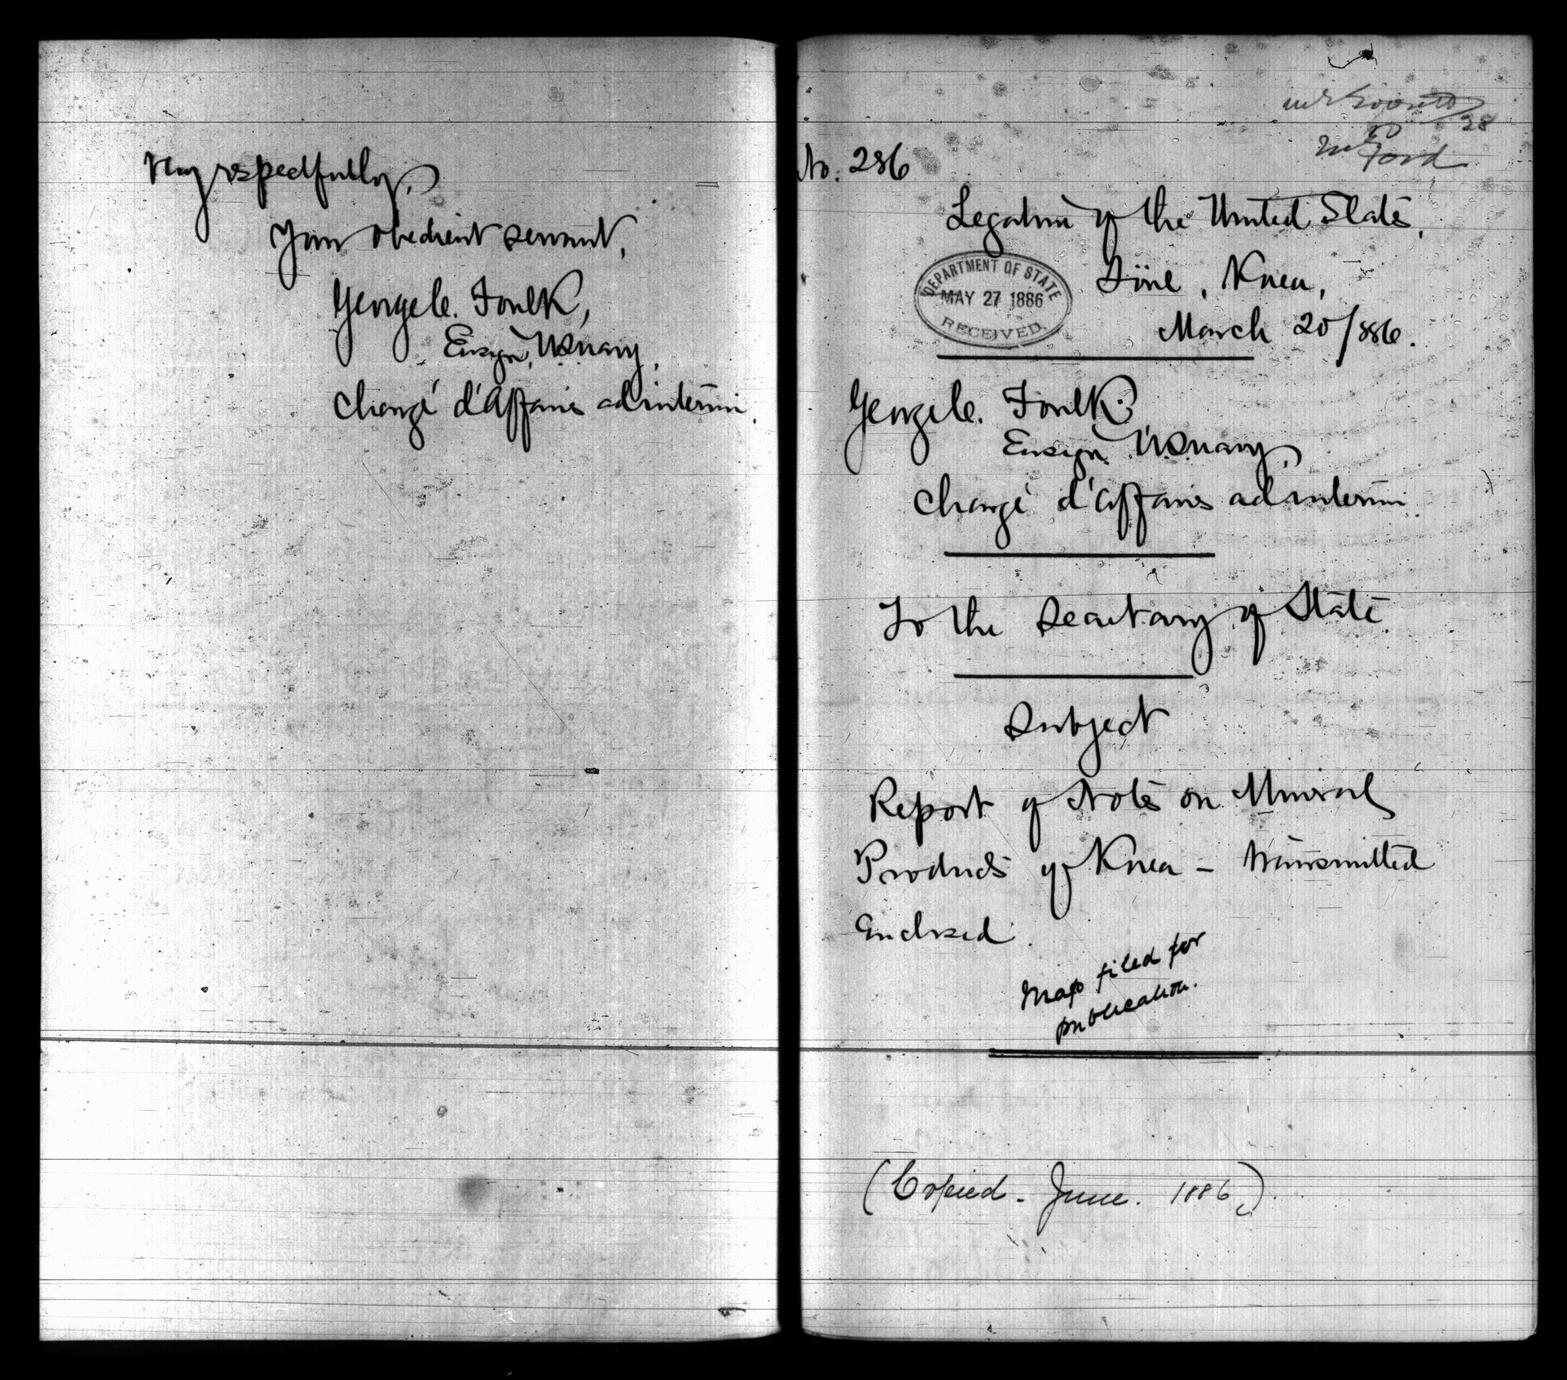 Very respectfully,
Your obedient servant,
George C. Foulk,
Ensign, U.S. Navy,
Chargé d'Affaires ad interim.
No. 286
28
Mr Ford
Legation of the United States,
Söul, Korea,
March 20/886.
DEPARTMENT OF STATE
MAY 27 1886
RECEIVED.
George C. Foulk:
Ensign U.S. Navy,
Chargé d'Affaires ad interim.
To the Secretary of State
Subject
Report of Notes on Mineral
Products of Korea – transmitted
Enclosed.
Map filed for
publication.
(Copied – June. 1886.)